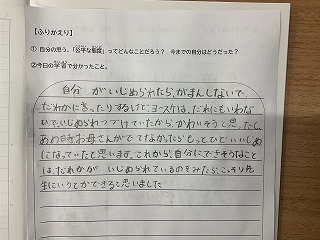 【ふりかえり】
① 自分の思う、「公平な態度」ってどんなことだろう? 今までの自分はどうだった?
②今日の学習で分かったこと。
自分がいじめられたら、がまんしないで、
だれかにきったりするけど、ヨースケは、だれにもいわな
いで、いじめられつづけていたから、かわいそうと思ったし、
あの時お母さんがでてなかったらもっとひどいいじめ
になっていたと思います。これから、自分にできそうなこと
は、だれかが いじめられているのをみたら、こっそり先
生にいうことができると思いました